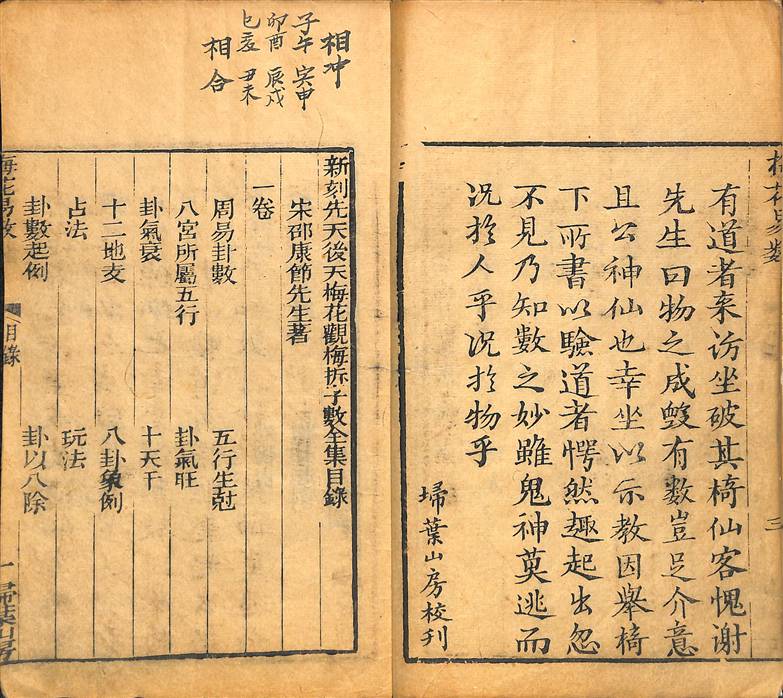 有道者来訪坐破其椅仙客愧謝
先生曰物之成毀有数豈足介意
且公神仙也幸坐以示教因舉椅
下所書以驗道者愕然趣起出忽
不見乃知數之妙雖鬼神莫逃而
况於人乎况於物乎
掃葉山房校刊
相冲
子午 寅申
卯酉 辰戌
巳亥 丑未
相合
新刻先天後天梅花觀梅拆字數全集目錄
宋邵康節先生著
一卷
周易卦數 五行生尅
八宮所屬五行 卦氣旺
卦氣衰 十天干
十二地支 八卦象例
占法 玩法
卦數起例 卦以八除
梅花易數 目錄 一 掃葉山房